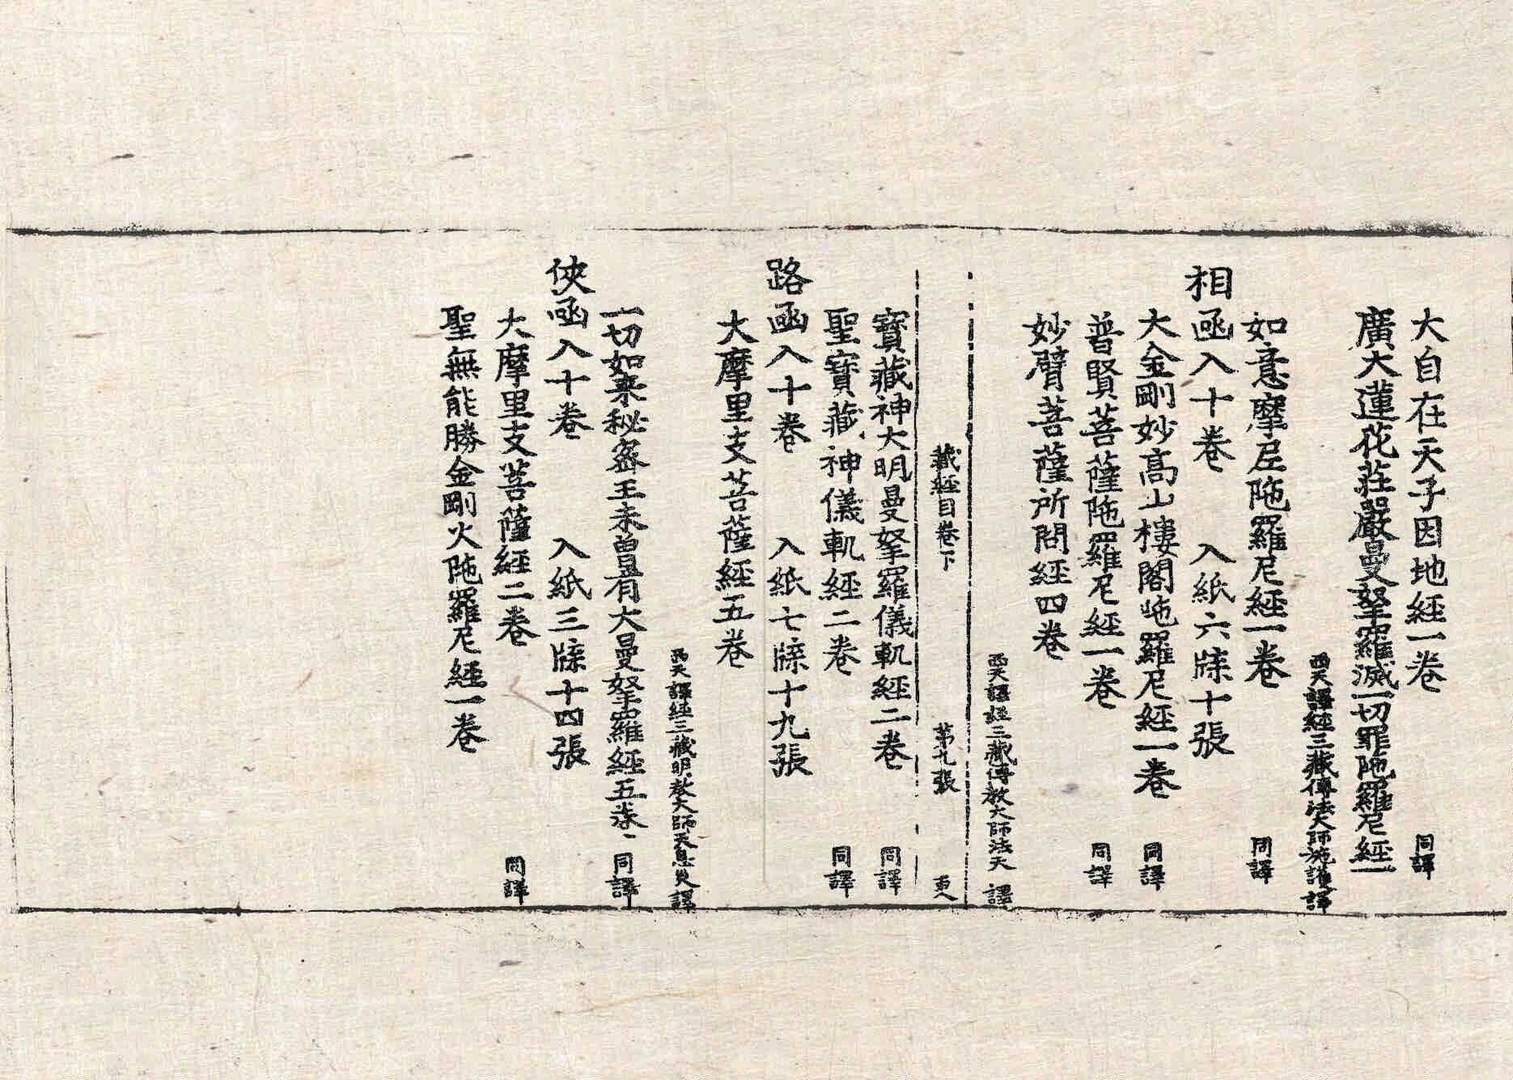 大自在天子因地經一卷 同譯
廣大蓮花莊嚴曼拏羅滅一切罪陁羅尼經一
西天譯經三藏傳法大師施護譯
如意摩尼陁羅尼經一卷 同譯
相函入十卷 入紙六牒十張
大金剛妙高山樓閣陁羅尼經一卷 同譯
普賢菩薩陁羅尼經一卷 同譯
妙臂菩薩所問經四卷
西天譯經三藏傳教大師法天 譯
藏經目卷下 第九張 更
寶藏神大明曼拏羅儀軌經二卷 同譯
聖寶藏神儀軌經二卷 同譯
路函入十卷 入紙七牒十九張
大摩里支菩薩經五卷
西天譯經三藏明教大師天息災譯
一切如來秘密王未曾有大曼拏羅經五卷 同譯
俠函入十卷 入紙三牒十四張
大摩里支菩薩經二卷 同譯
聖無能勝金剛火陁羅尼經一卷